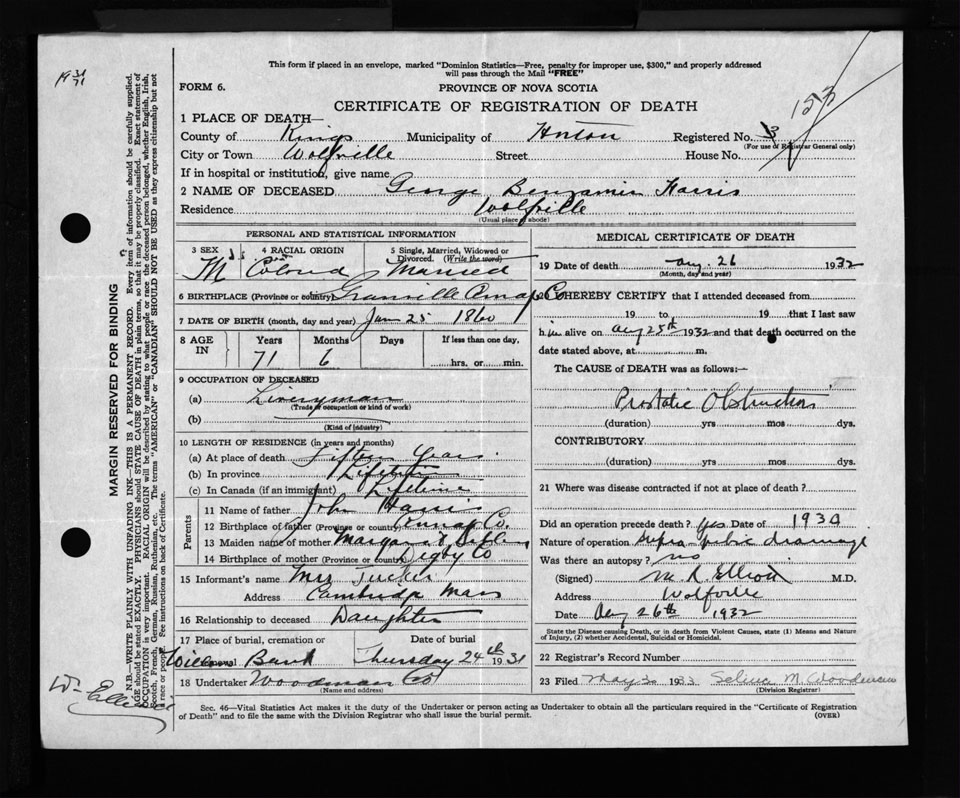 19 31/71
This form if placed in an envelope, marked "Dominion Statistics—Free, penalty for improper use, $300," and properly addressed
will pass through the Mail "FREE"
FORM 6.
PROVINCE OF NOVA SCOTIA
CERTIFICATE OF REGISTRATION OF DEATH
153
1 PLACE OF DEATH—
County of Kings Municipality of Horton Registered No. 3
(For use of Registrar General only)
City or Town Wolfville Street House No.
If in hospital or institution, give name
2 NAME OF DECEASED George Benjamin Harris
Residence Wolfville
(Usual place of abode)
PERSONAL AND STATISTICAL INFORMATION
3 SEX M
4 RACIAL ORIGIN Colored
5 Single, Married, Widowed or Divorced. (Write the word) Married
6 BIRTHPLACE (Province or country) Granville Annap Co
7 DATE OF BIRTH (month, day and year) Jan 25 1860
8 AGE IN Years 71 Months 6 Days If less than one day, hrs. or min.
9 OCCUPATION OF DECEASED
(a) Liveryman
(Trade or occupation or kind of work)
(b)
(Kind of industry)
10 LENGTH OF RESIDENCE (in years and months)
(a) At place of death Fifteen Years
(b) In province Lifetime
(c) In Canada (if an immigrant) Lifetime
Parents
11 Name of father John Harris
12 Birthplace of father (Province or country) Annap Co.
13 Maiden name of mother Margaret
14 Birthplace of mother (Province or country) Digby Co
15 Informant's name Mrs Tucker
Address Cambridge Mass
16 Relationship to deceased Daughter
17 Place of burial, cremation or removal Bank
Date of burial Thursday 24th 1931
18 Undertaker Woodman Co
(Name and address)
MEDICAL CERTIFICATE OF DEATH
19 Date of death Aug. 26 1932
(Month, day and year)
20 I HEREBY CERTIFY that I attended deceased from
19 to 19 that I last saw
him alive on Aug 25th 1932 and that death occurred on the
date stated above, at m.
The CAUSE of DEATH was as follows:—
Prostatic Obstruction
(duration) yrs mos dys.
CONTRIBUTORY
(duration) yrs. mos. dys.
21 Where was disease contracted if not at place of death?
Did an operation precede death? Yes Date of 1930
Nature of operation Supra-pubic drainage
Was there an autopsy? no
(Signed) M. R. Elliott M.D.
Address Wolfville
Date Aug 26th 1932
State the Disease causing Death, or in death from Violent Causes, state (1) Means and Nature
of Injury, (2) whether Accidental, Suicidal or Homicidal.
22 Registrar's Record Number
23 Filed May 30 1933 Selina M. Woodman
(Division Registrar)
Sec. 46—Vital Statistics Act makes it the duty of the Undertaker or person acting as Undertaker to obtain all the particulars required in the "Certificate of Registration
of Death" and to file the same with the Division Registrar who shall issue the burial permit.
(OVER)
MARGIN RESERVED FOR BINDING
N.B.—WRITE PLAINLY WITH UNFADING INK—THIS IS A PERMANENT RECORD. Every item of information should be carefully supplied.
AGE should be stated EXACTLY. PHYSICIANS should STATE CAUSE OF DEATH in plain terms, so that it may be properly classified. Exact statement of
OCCUPATION is very important. RACIAL ORIGIN will be described by stating to what people or race the deceased person belonged, whether English, Irish,
Scotch, French, German, Russian, Ruthenian, etc. The terms "AMERICAN" or "CANADIAN" SHOULD NOT BE USED as they express citizenship but not
a race or people. See instructions on back of Certificate.